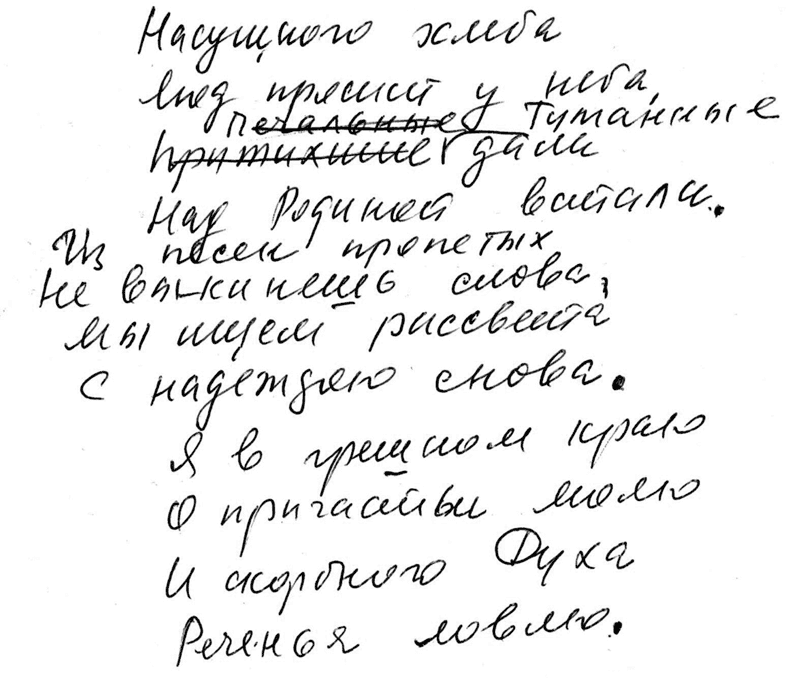 Насущного хлеба
Люд просит у неба,
Печальные Туманные
Притихшие дали
Над Родиной встали.
Из песен пропетых
Не выкинешь слова,
Мы ищем рассвета
С надеждою снова.
Я в грешном краю
О причастьи молю
И скорбного Духа
Реченья ловлю.